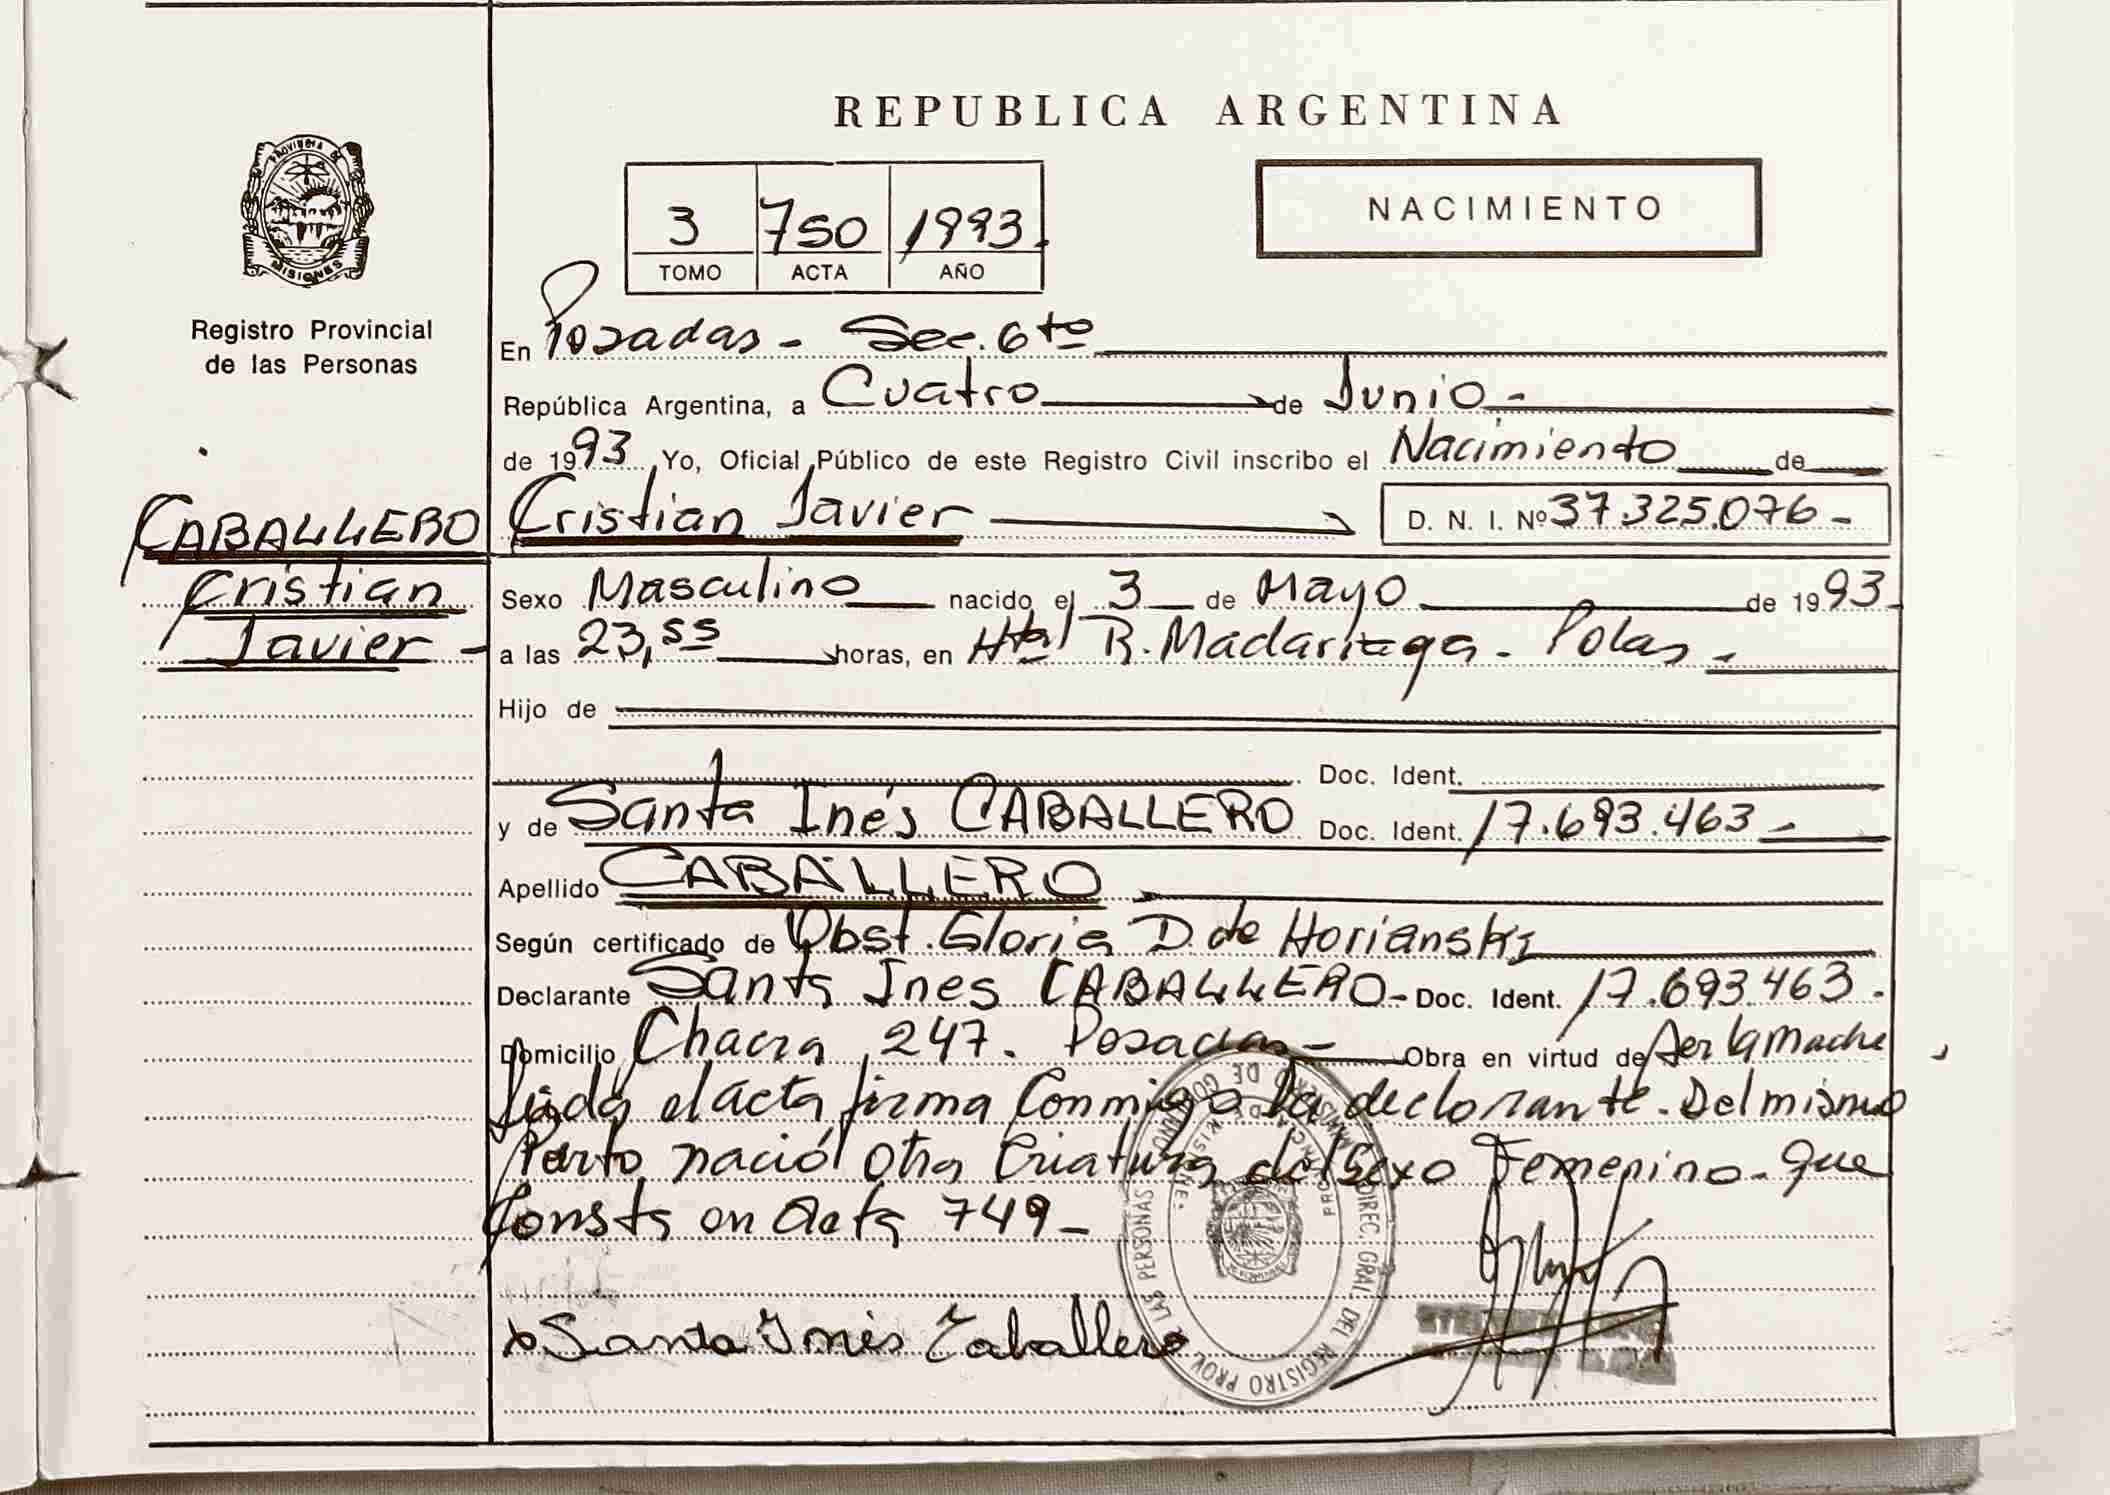 REPUBLICA ARGENTINA
PROVINCIA DE
MISIONES
Registro Provincial
de las Personas
3 750 1993
TOMO ACTA AÑO
NACIMIENTO
En Posadas - Sec. 6to
República Argentina, a Cuatro de Junio -
de 1993 Yo, Oficial Público de este Registro Civil inscribo el Nacimiento de
Cristian Javier D. N. I. Nº 37.325.076 -
CABALLERO
Cristian
Javier -
Sexo Masculino nacido el 3 de Mayo de 1993
a las 23,55 horas, en Htal R. Madariaga - Pdas -
Hijo de
Doc. Ident.
y de Santa Inés CABALLERO Doc. Ident. 17.693.463 -
Apellido CABALLERO
Según certificado de Obst. Gloria D. de Horianski
Declarante Santa Ines CABALLERO - Doc. Ident. 17.693.463.
Domicilio Chacra 247. Posadas - Obra en virtud de Ser la Madre
Leida el acta firma Conmigo la declarante. Del mismo
Parto nació otra Criatura del Sexo Femenino - que
Consta en Acta 749 -
x Santa Inés Caballero
DIREC. GRAL. DEL REGISTRO PROV. DE LAS PERSONAS